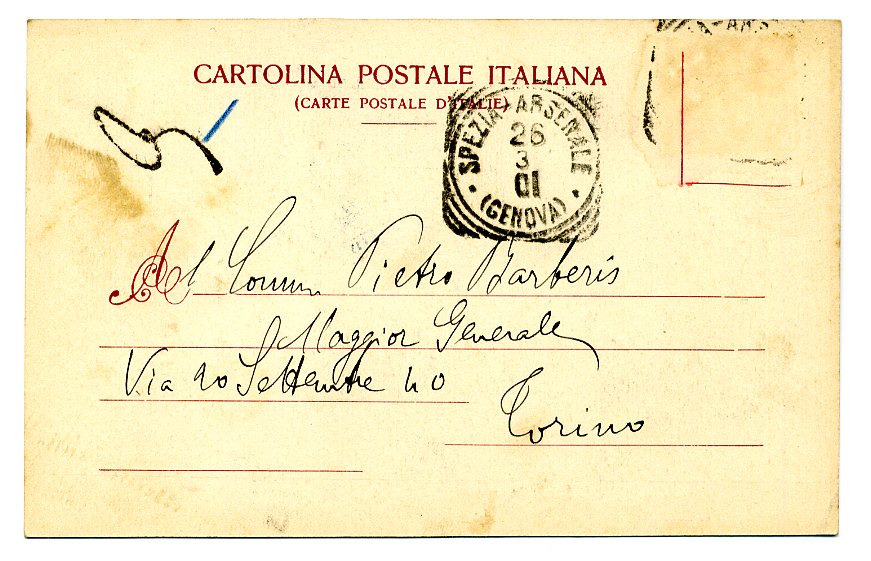 CARTOLINA POSTALE ITALIANA
(CARTE POSTALE D'ITALIE)
SPEZIA-ARSENALE
26
3
01
(GENOVA)
Al Comm Pietro Barberis
Maggior Generale
Via 20 Settembre 40
Torino